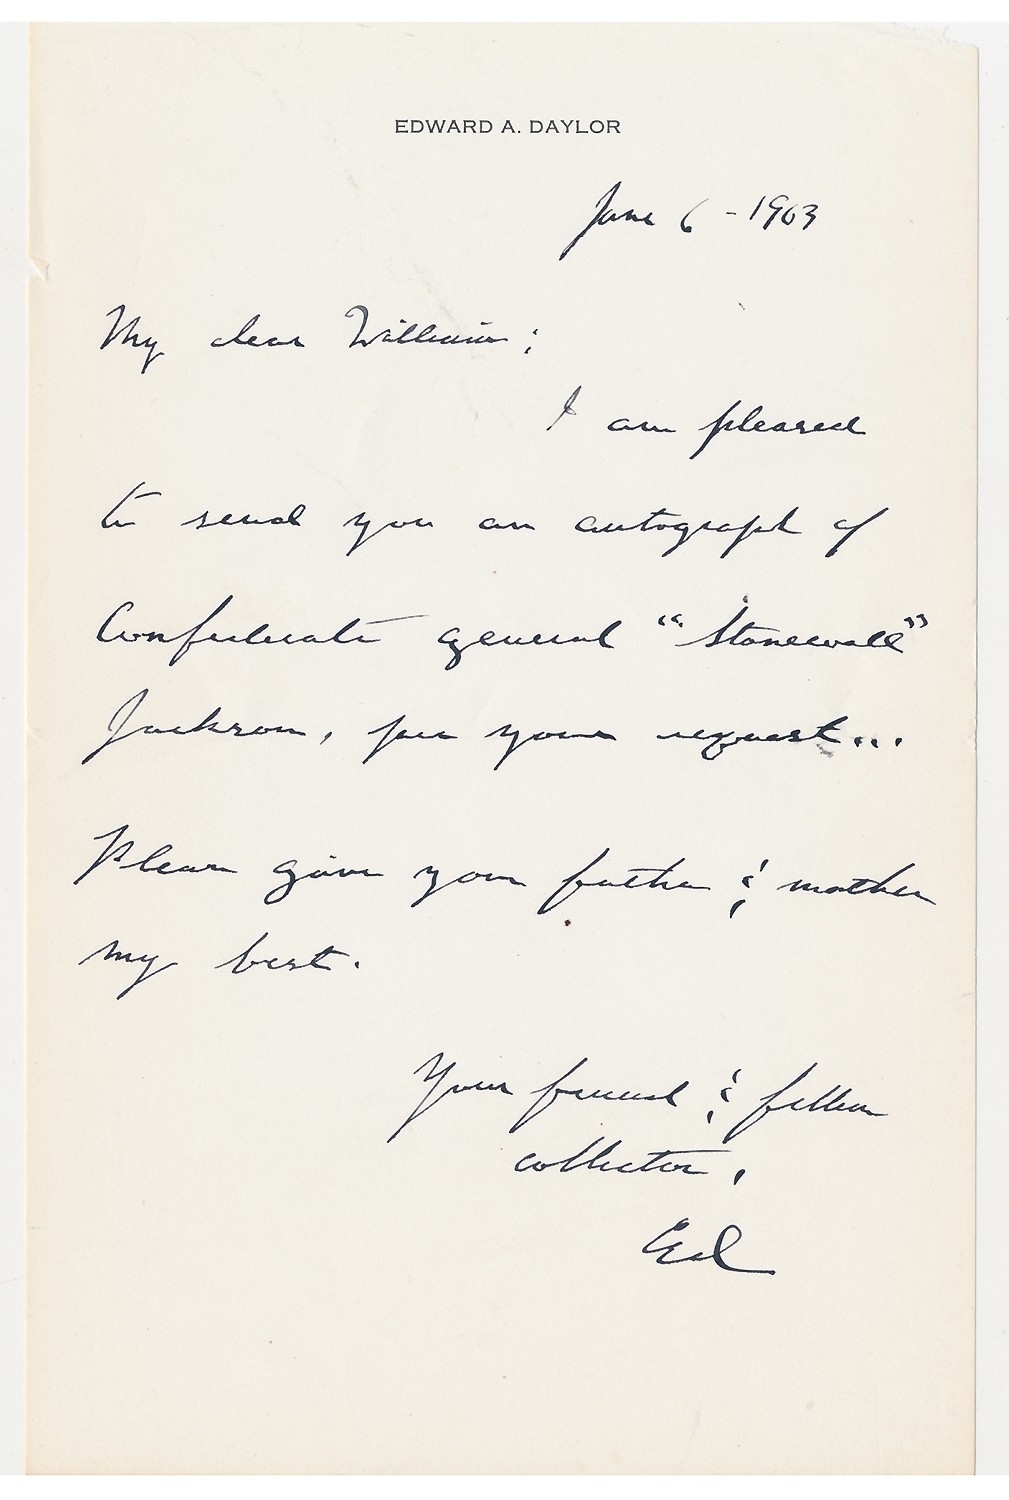 EDWARD A. DAYLOR
June 6 - 1963
My dear William;
I am pleased
to send you an autograph of
Confederate general "Stonewall"
Jackson, per your request...
Please give your father & mother
my best.
Your friend & fellow
collector,
Ed